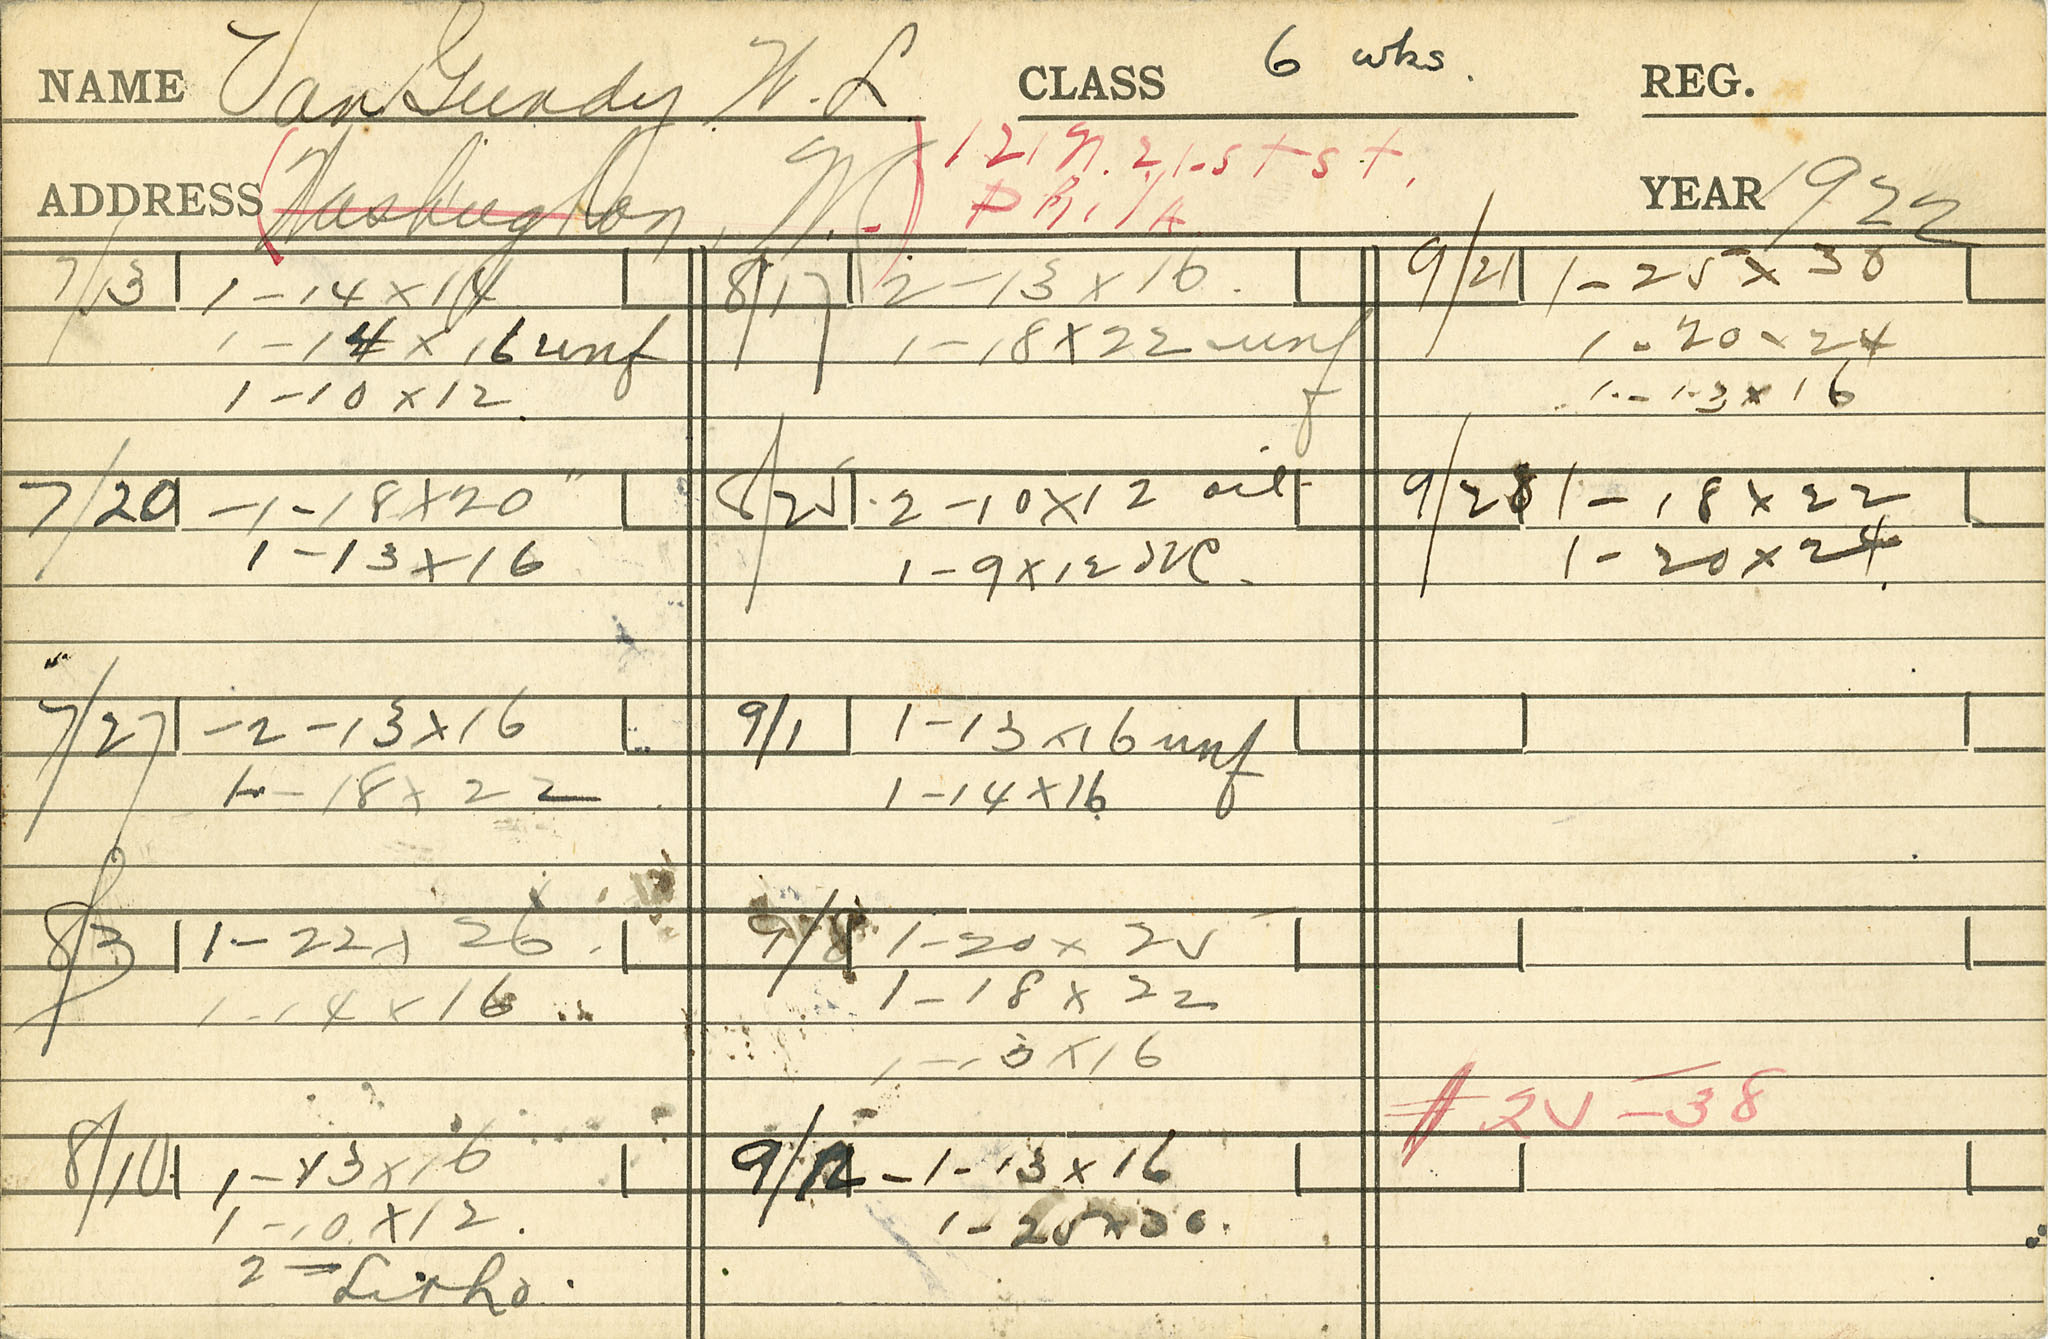 NAME Van Gundy W. L CLASS 6 wks. REG.
ADDRESS (Washington, ) 121 N. 21-st st, YEAR 1922
Phila
7/13 1-14x14
1-14x16 unf
1-10x12.
7/20 -1-18x20"
1-13x16
7/27 -2-13x16
1-18x22
8/3 1-22x26.
1-14x16
8/10 1-13x16
1-10x12.
2-Litho.
8/17 2-13x16.
1-18x22 unf
8/25 2-10x12 oil
1-9x12
9/1 1-13x16 unf
1-14x16
9/8 1-20x25
1-18x22
1-13x16
9/12 -1-13x16
1-25x30.
9/21 1-25x30
1-20x24
1-13x16
9/28 1-18x22
1-20x24
# 25-38